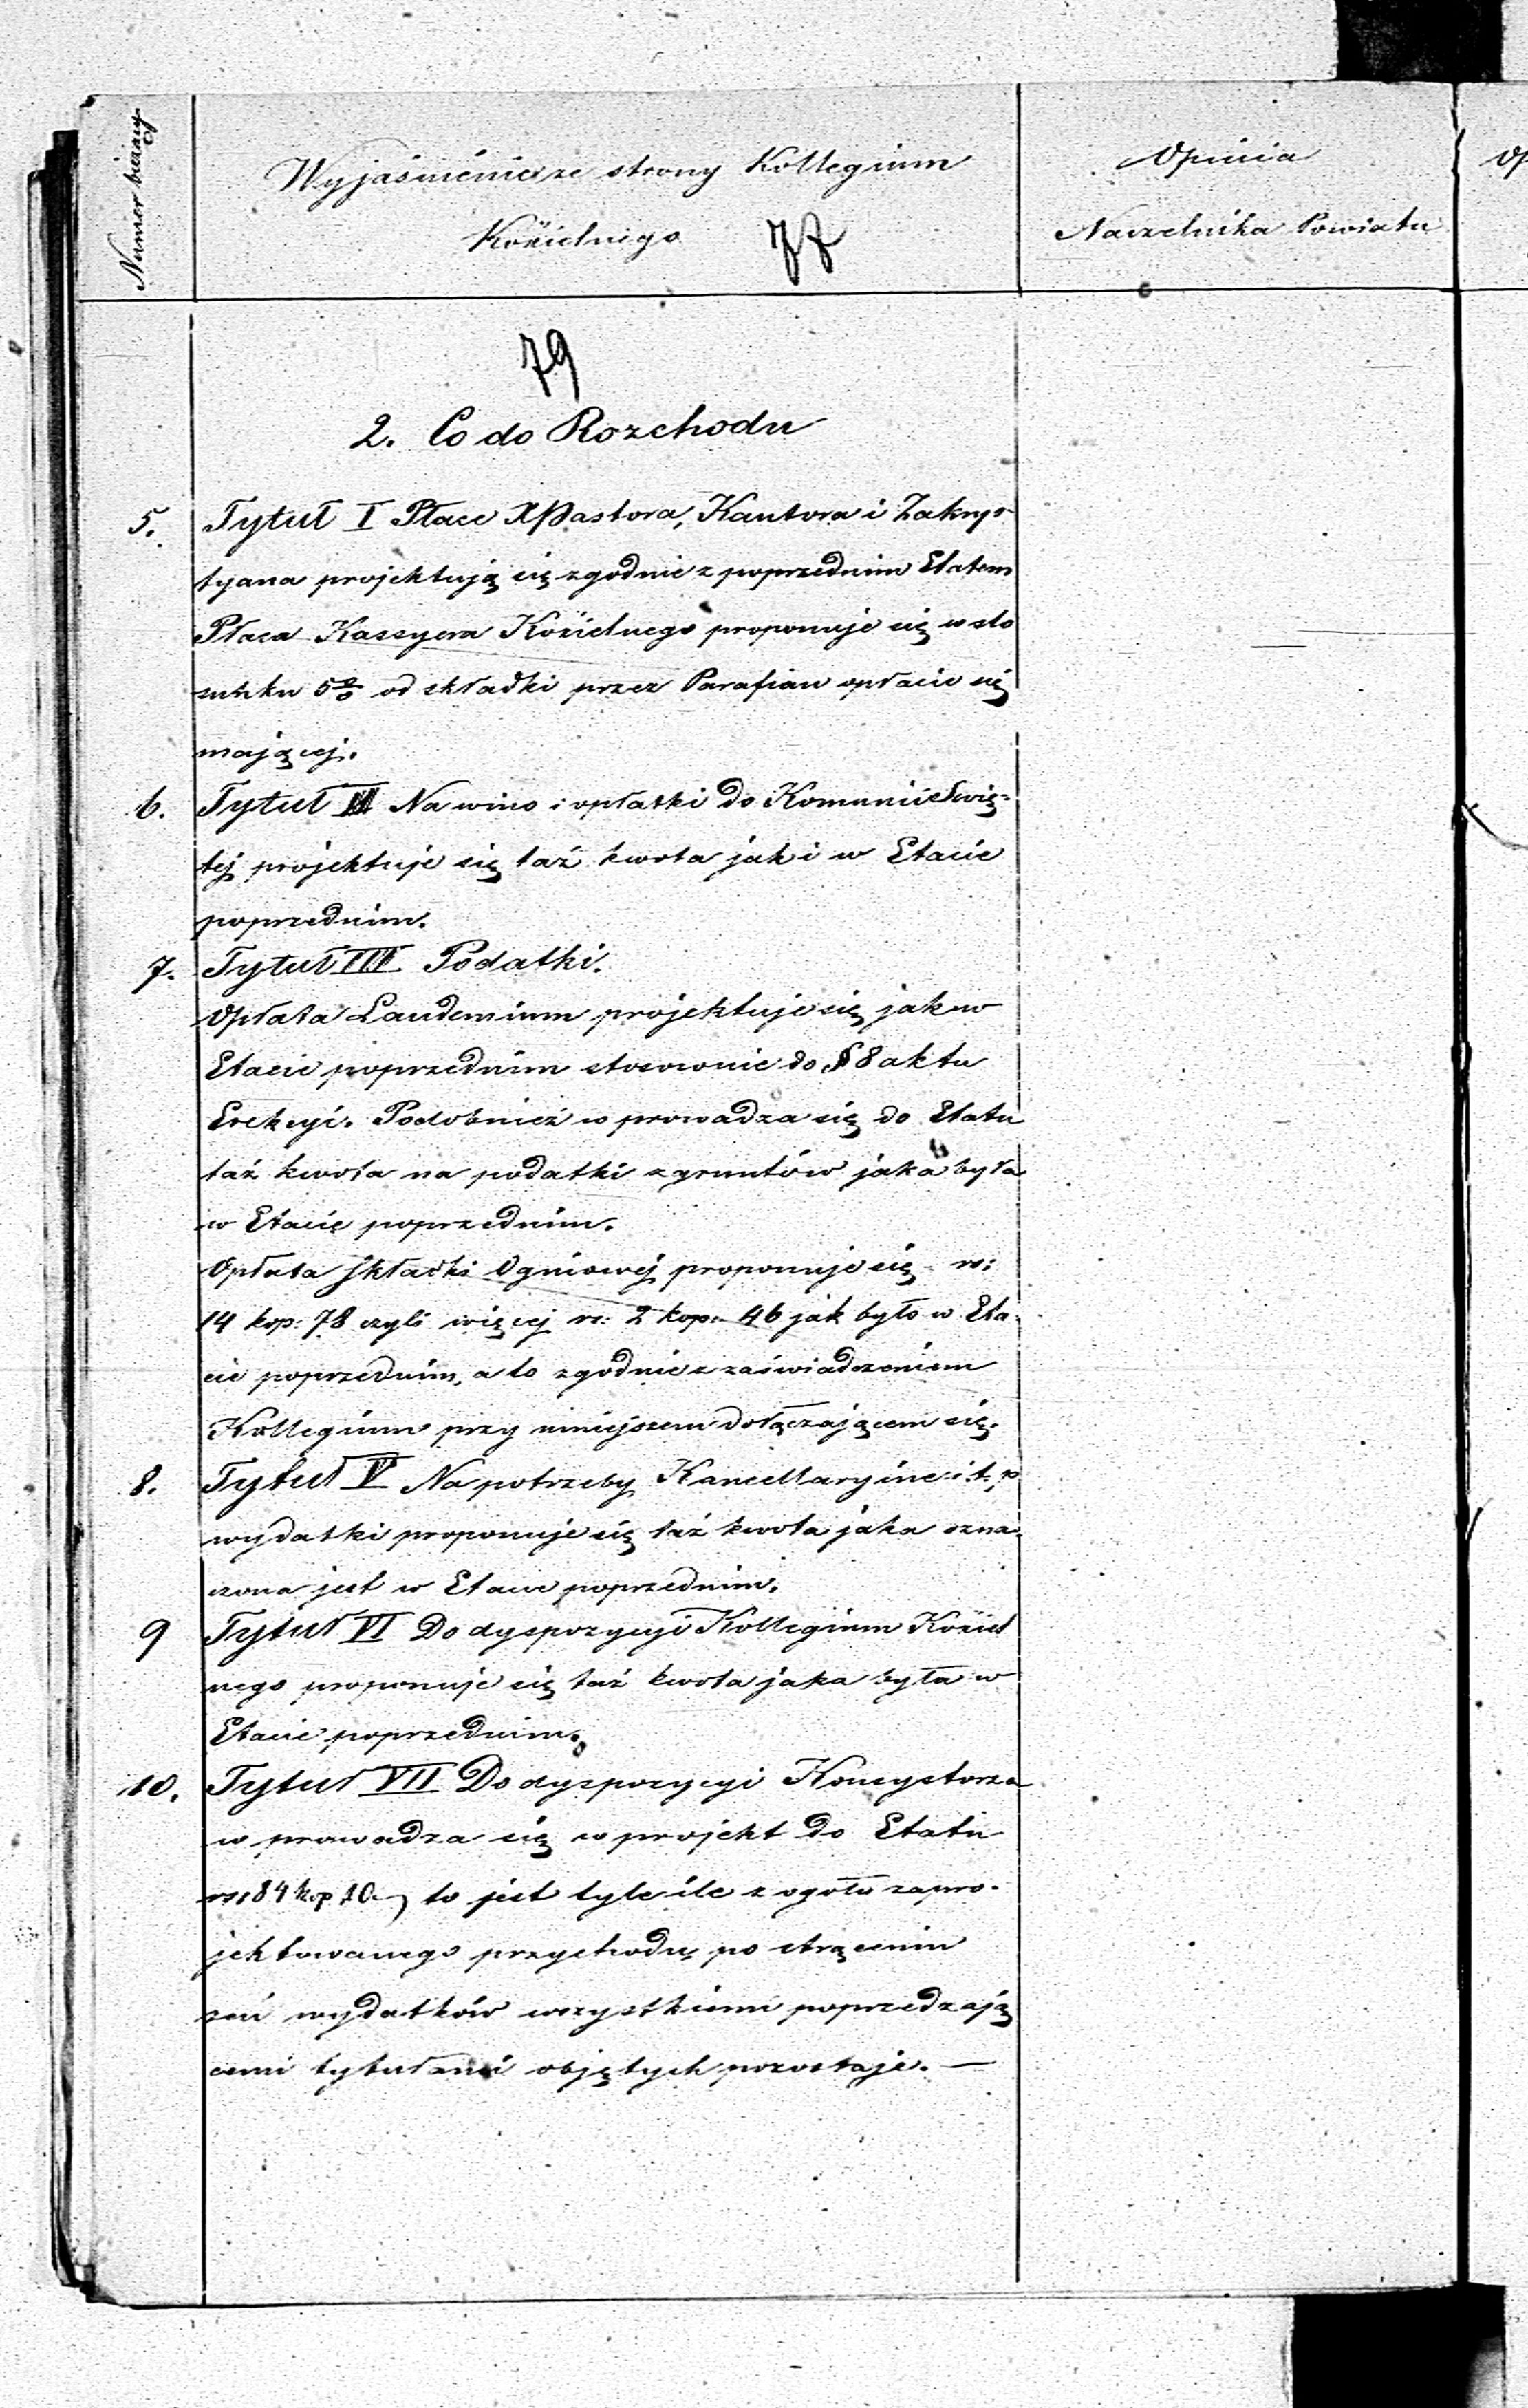 Numer bieżący
Wyjaśnienie ze strony Kollegium
Kościelnego 77
Opinia
Naczelnika Powiatu
79
2. Co do Rozchodu
5. Tytuł I Płace X Pastora, Kantora i Zakrys-
tyana projektują się zgodnie z poprzednim Etatem
Płaca Kassyera Kościelnego proponuje się w sto
sunku 5% od składki przez Parafian opłacić się
mającej.
6. Tytuł II Na wino i opłatki do Komunii Swię-
tej projektuje się taż kwota jak i w Etacie
poprzednim.
7. Tytuł III Podatki.
Opłata Laudemium projektuje się jak w
Etacie poprzednim stosownie do § 8 aktu
Erekcyi. Podobnież wprowadza się do Etatu
taż kwota na podatki z gruntów jaka była
w Etacie poprzednim.
Opłata Składki Ogniowej proponuje się rs:
14 kop: 78 czyli więcej rs: 2 kop: 46 jak było w Eta-
cie poprzednim, a to zgodnie z zaświadczeniem
Kollegium przy niniejszem dołączającem się.
8. Tytuł V Na potrzeby Kancellaryine i t. p
wydatki proponuje się taż kwota jaka ozna-
czona jest w Etacie poprzednim.
9 Tytuł VI Do dyspozycyi Kollegium Kościel
nego proponuje się taż kwota jaka była w
Etacie poprzednim.
10. Tytuł VII Do dyspozycyi Konsystorza
wprowadza się w projekt do Etatu
rs: 84 kop 10 to jest tyle ile z ogółu zapro-
jektowanego przychodu, po strąceniu
zeń wydatków wszystkiemi poprzedzają
cemi tytułami objętych pozostaje. —